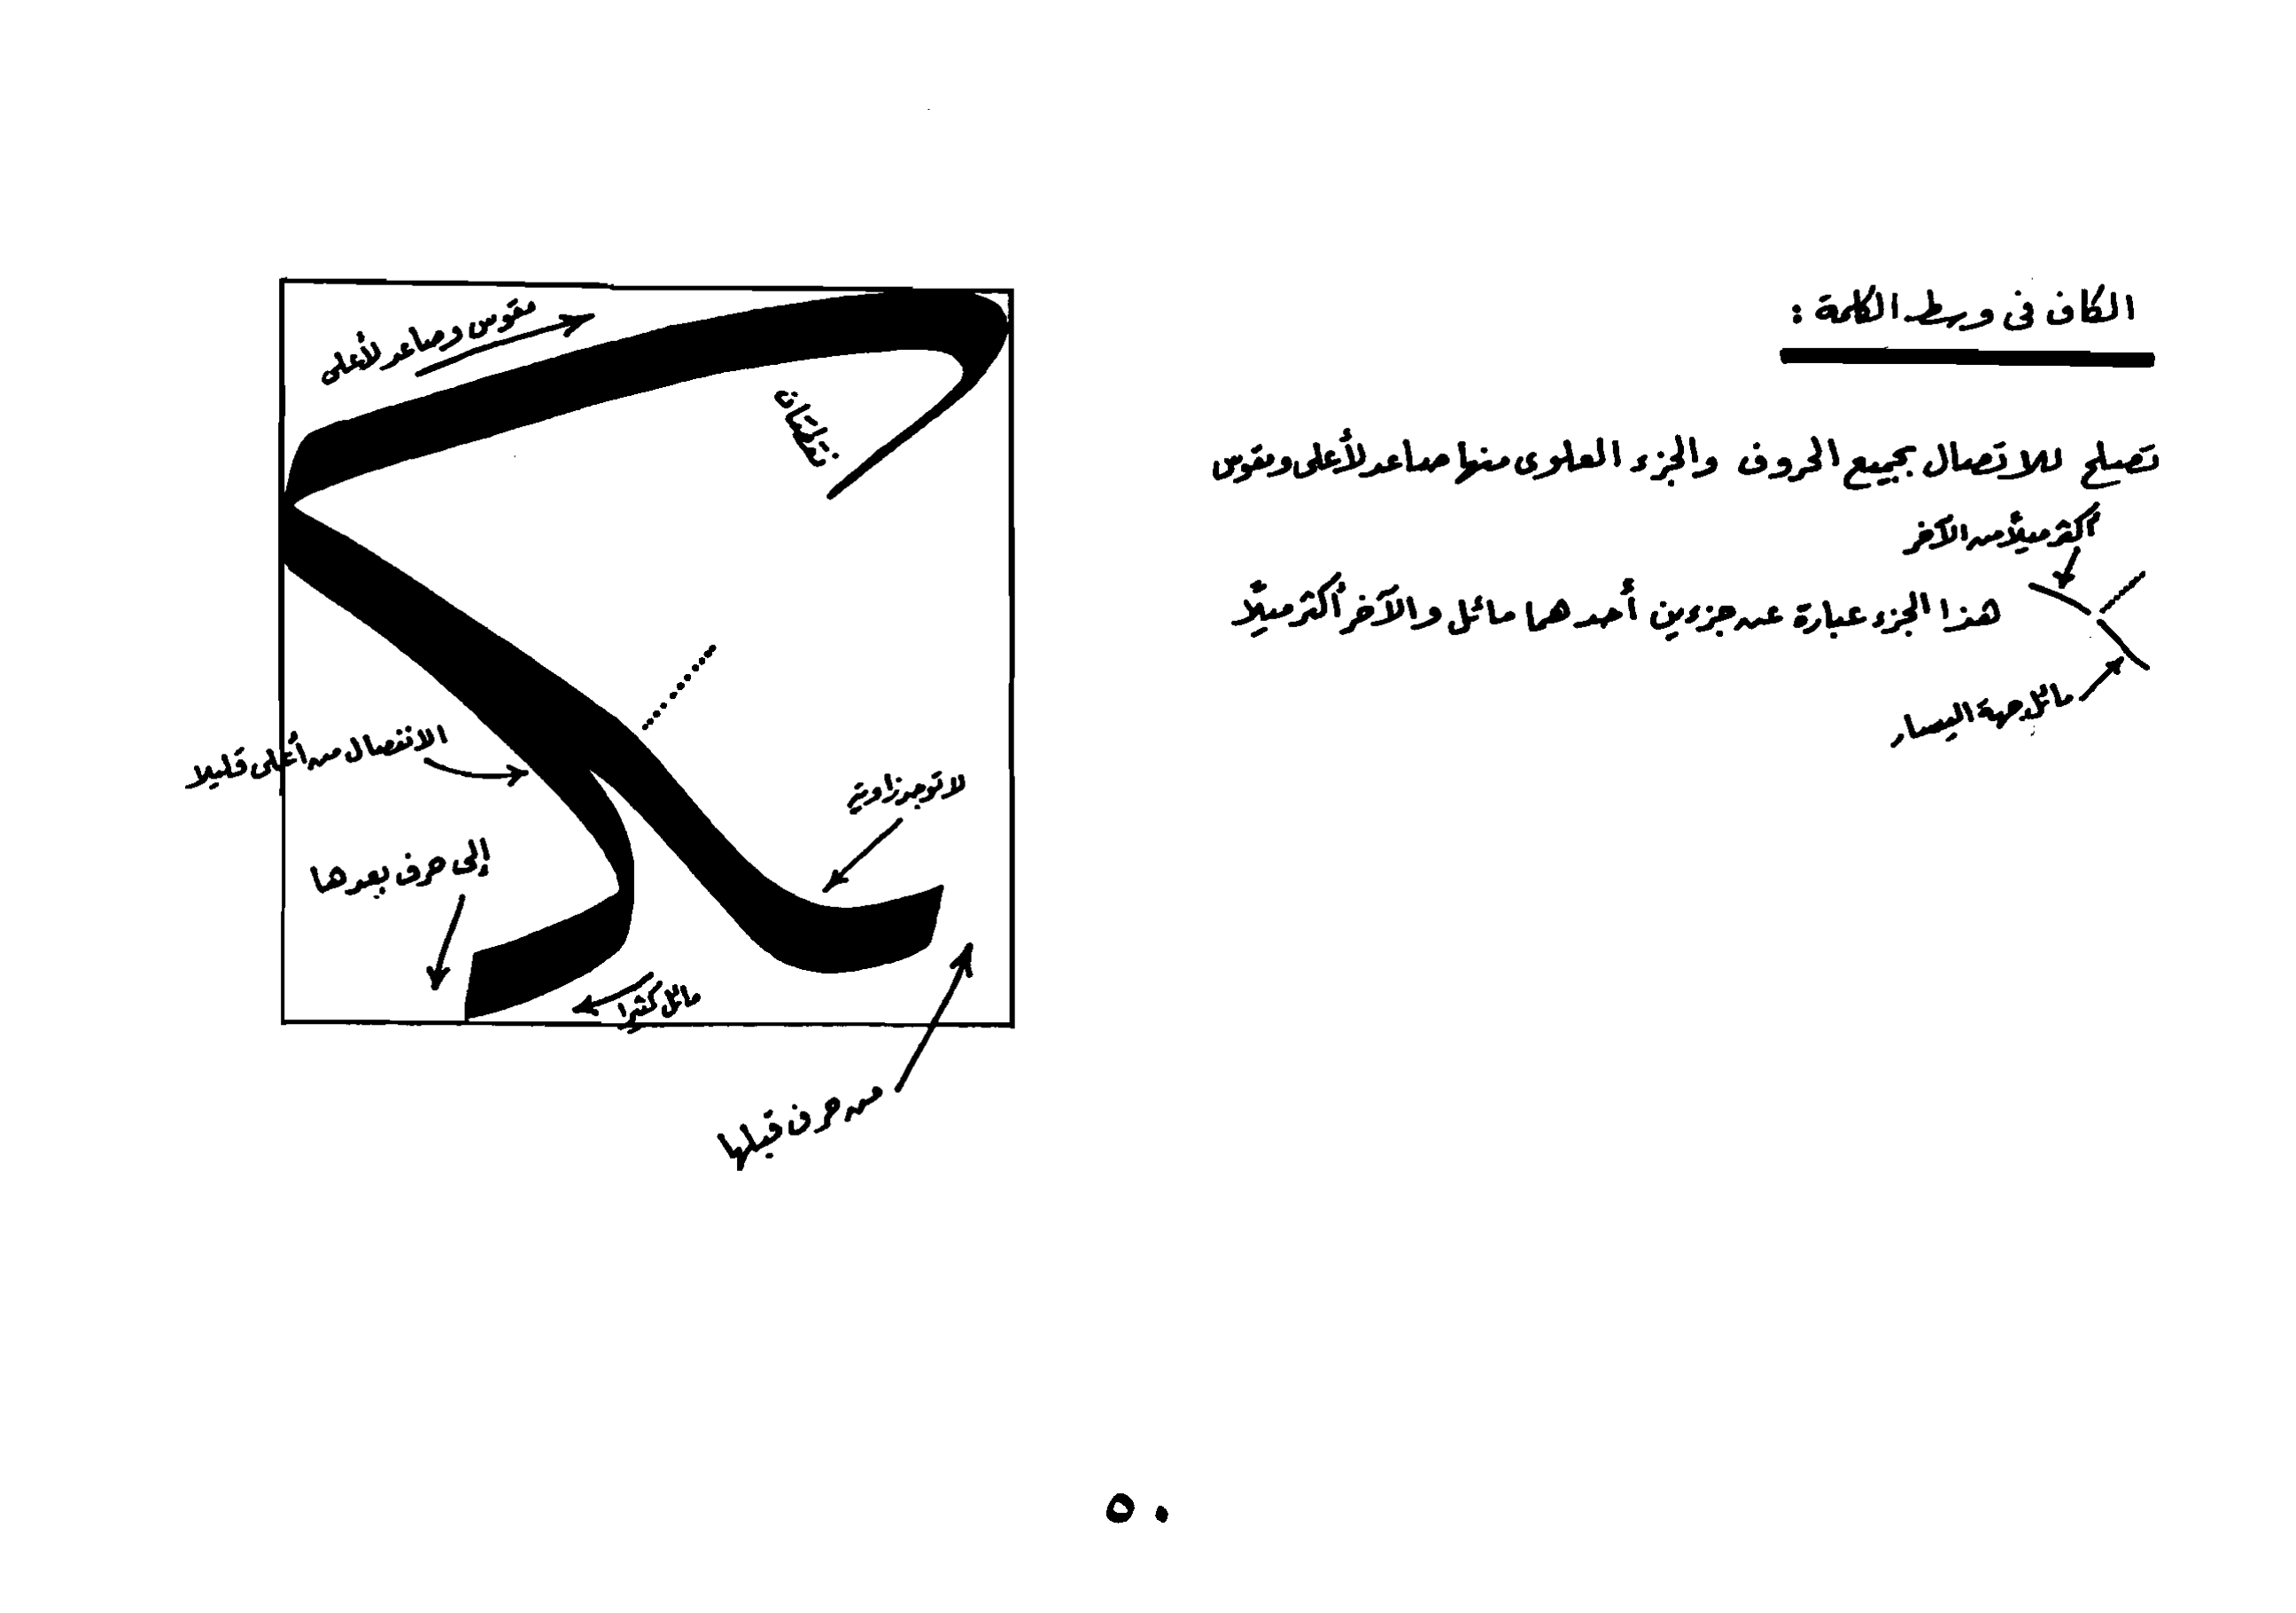 الكاف فى وسط الكلمة :
تصلح للاتصال بجميع الحروف والجزء العلوى منها صاعد لأعلى ومقوس
أكثر ميلًا من الآخر
هذا الجزء عبارة عن جزءين أحدهما مائل والآخر أكثر ميلًا
مائل جهة اليسار
مقوس وصاعد لأعلى
الانفصال من أعلى قليلا
لا توجد زاوية
إلى حرف بعدها
مائل كثيرا
من حرف قبلها
٥٠